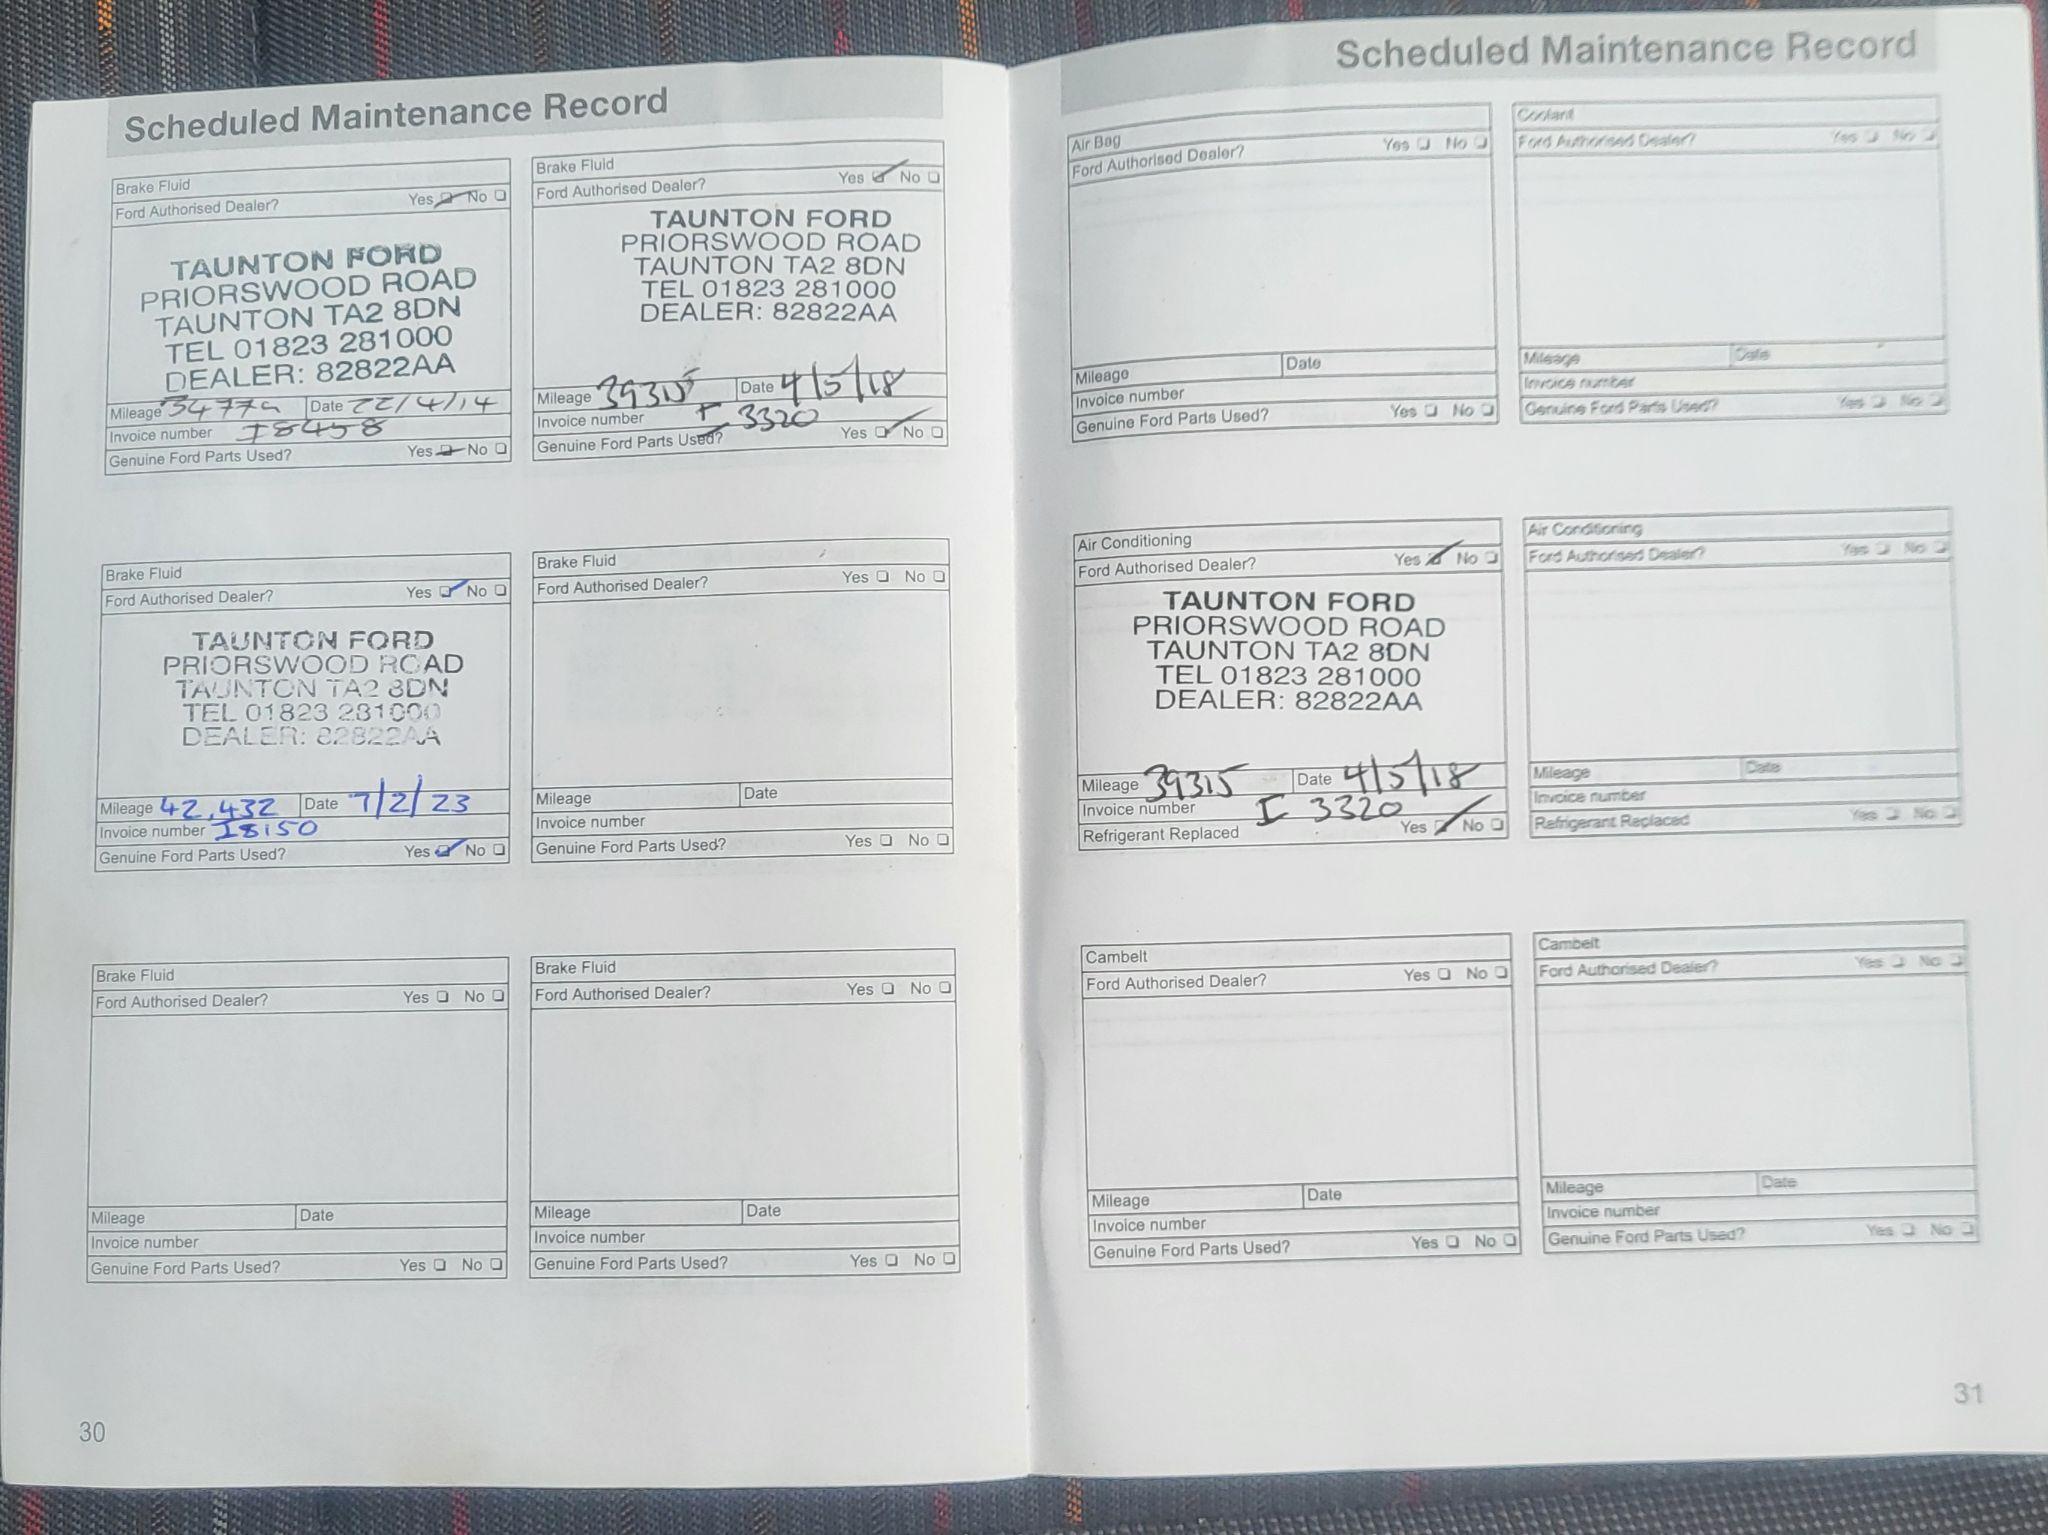 Scheduled Maintenance Record
Brake Fluid
Ford Authorised Dealer? Yes No
TAUNTON FORD
PRIORSWOOD ROAD
TAUNTON TA2 8DN
TEL 01823 281000
DEALER: 82822AA
Mileage Date 22/4/14
Invoice number I8458
Genuine Ford Parts Used? Yes No
Brake Fluid
Ford Authorised Dealer? Yes No
TAUNTON FORD
PRIORSWOOD ROAD
TAUNTON TA2 8DN
TEL 01823 281000
DEALER: 82822AA
Mileage 39315 Date 4/5/18
Invoice number I 3320
Genuine Ford Parts Used? Yes No
Brake Fluid
Ford Authorised Dealer? Yes No
TAUNTON FORD
PRIORSWOOD ROAD
TAUNTON TA2 8DN
TEL 01823 281000
DEALER: 82822AA
Mileage 42,432 Date 7/2/23
Invoice number I8150
Genuine Ford Parts Used? Yes No
Brake Fluid
Ford Authorised Dealer? Yes No
Mileage Date
Invoice number
Genuine Ford Parts Used? Yes No
Brake Fluid
Ford Authorised Dealer? Yes No
Mileage Date
Invoice number
Genuine Ford Parts Used? Yes No
Brake Fluid
Ford Authorised Dealer? Yes No
Mileage Date
Invoice number
Genuine Ford Parts Used? Yes No
30
Scheduled Maintenance Record
Air Bag Yes No
Ford Authorised Dealer?
Mileage Date
Invoice number
Genuine Ford Parts Used? Yes No
Coolant
Ford Authorised Dealer? Yes No
Mileage Date
Invoice number
Genuine Ford Parts Used? Yes No
Air Conditioning
Ford Authorised Dealer? Yes No
TAUNTON FORD
PRIORSWOOD ROAD
TAUNTON TA2 8DN
TEL 01823 281000
DEALER: 82822AA
Mileage 39315 Date 4/5/18
Invoice number I 3320
Refrigerant Replaced Yes No
Air Conditioning
Ford Authorised Dealer? Yes No
Mileage Date
Invoice number
Refrigerant Replaced Yes No
Cambelt
Ford Authorised Dealer? Yes No
Mileage Date
Invoice number
Genuine Ford Parts Used? Yes No
Cambelt
Ford Authorised Dealer? Yes No
Mileage Date
Invoice number
Genuine Ford Parts Used? Yes No
31